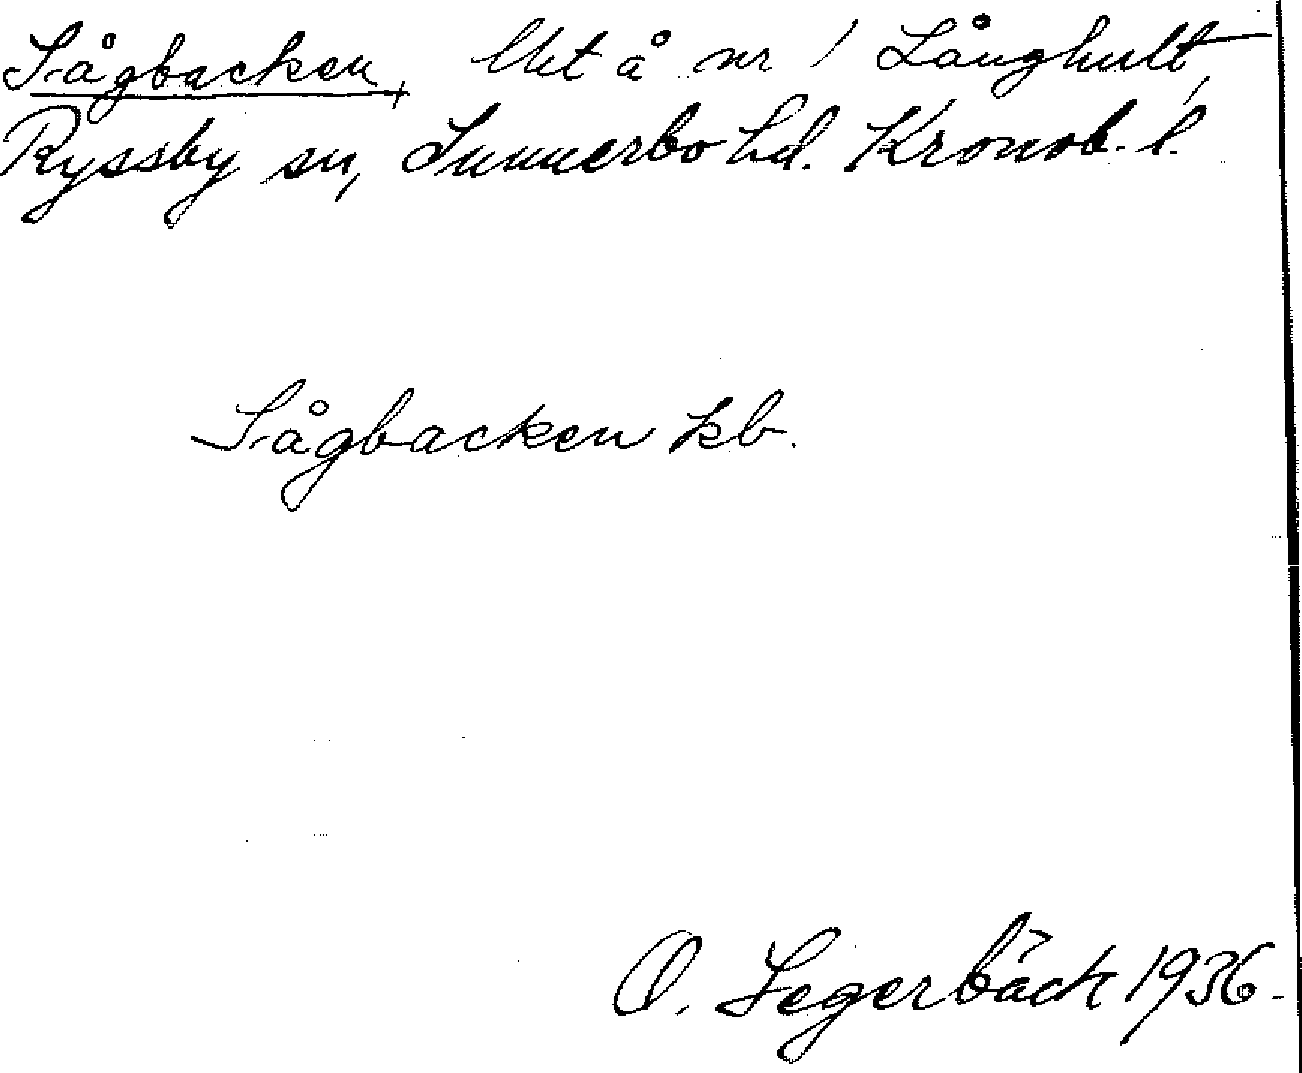 Sågbacken, Utet å nr 1 Långhult,
Ryssby sn, Sunnerbo hd. Kronob. l.
Sågbacken kb.
O. Segerbäck 1936.